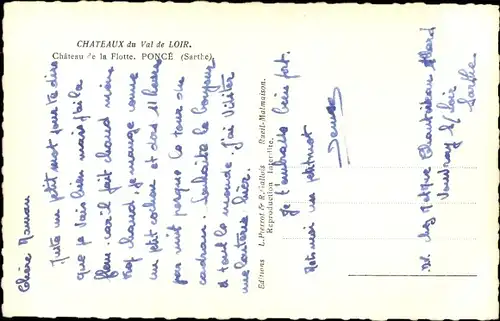 CHATEAUX du Val de LOIR.
Château de la Flotte. PONCÉ (Sarthe).
Chère Maman
Juste un petit mot pour te dire
que je vais bien mais j'ai la
flem. car il fait chaud même
trop chaud. je mange comme
un petit cochon et dors 11 heures
par nuit presque le tour du
cadran. Souhaite le bonjour
à tout le monde. j'ai visiter
une laiterie hier.
Editions L. Pierrot & R. Gallois Rueil-Malmaison.
Reproduction Interdite.
Je t'embrasse bien fort.
Mets moi un petit mot
Denise
chez Mme
Vouvray s/ Loir
Sarthe